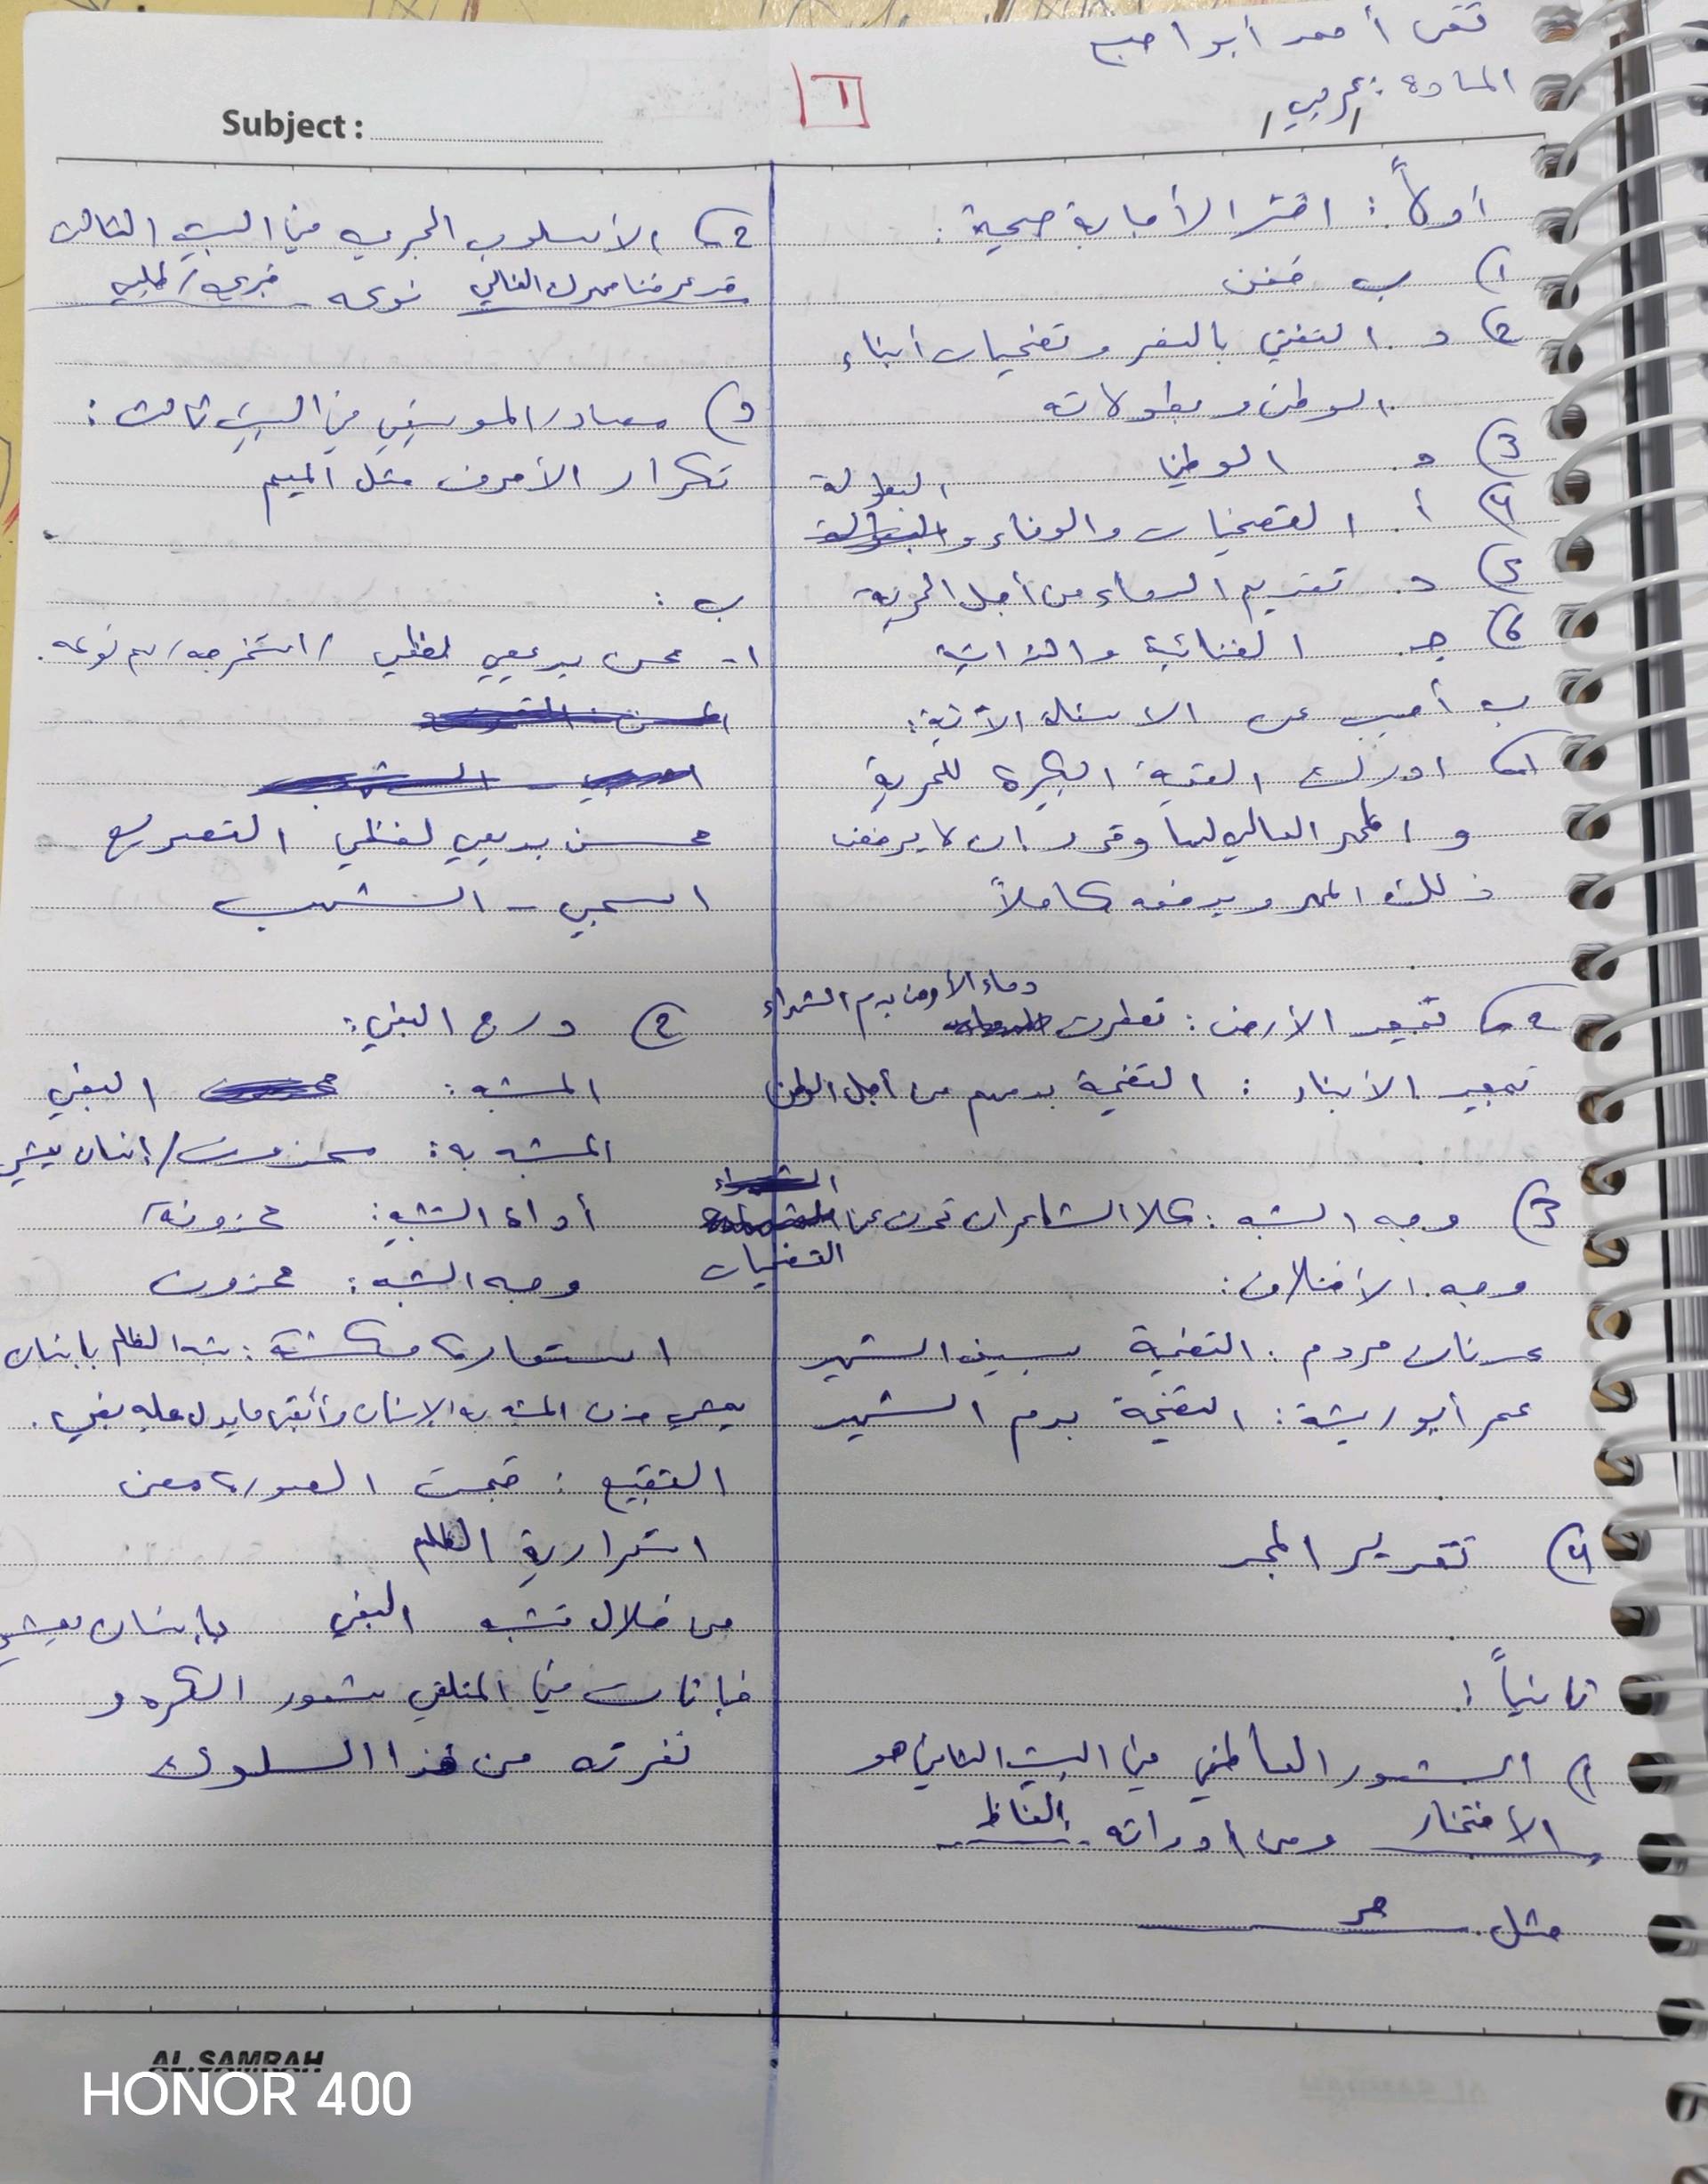 أحمد أبو
المادة: عربي
١
Subject :
أولاً: اختر الأجابة صحيحة:
١) ب خفض
2) د. التغني بالنصر وتضحيات أبناء
الوطن وبطولاته
3) د. الوطني
البطولة
4) أ. التضحيات والوفاء و
5) د. تقديم الدماء من أجل الحرية
6) جـ. الغنائية والذاتية
ب أجيب عن الاسئلة الآتية:
١) ادرك القيمة الكبيرة للحرية
و المهر الغالي لها وقرر ان لا يرفض
ذلك المهر ويدفعه كاملاً
دماء الأرض بدم الشهداء
2) تعبير الأرض: تعطرت
تعبير الأبناء: التضحية بدمهم من أجل الوطن
3) وجه الشبه: كلا الشاعران تحدث عن
التضحيات
وجه الأختلاف:
عدنان مردم: التضحية بسيف الشهيد
عمر أبو ريشة: التضحية بدم الشهيد
4) تقدير المجد
ثانياً:
١) الشعور العاطفي في البيت الثاني هو
الافتخار ومن ادواته الفاظ
مثل حر
2) الأسلوب الخبري في البيت الثالث
قد عرفنا مهرك الغالي نوعه خبري/طلبي
3) مصادر الموسيقى في البيت ثالث:
تكرار الأحرف مثل الميم
ب:
١- محسن بديعي لفظي / استخرجه/سم نوعه.
محسن بديعي لفظي التصريع
اسحبي - الشهب
2) درج البغي:
المشبه: البغي
المشبه به: محذوف/إنسان يمشي
أداة التشبيه: محذوفة
وجه الشبه: محذوف
استعارة مكنية: شبه الظلم بإنسان
يمشي حذف المشبه به الإنسان وأبقى ما يدل عليه بغي.
التقبيح: قبحت الصورة معنى
استمرارية الظلم
من خلال تشبيه البغي بإنسان يمشي
فأثارت في المتلقي شعور الكره و
نفرته من هذا السلوك
AL.SAMRAH
HONOR 400